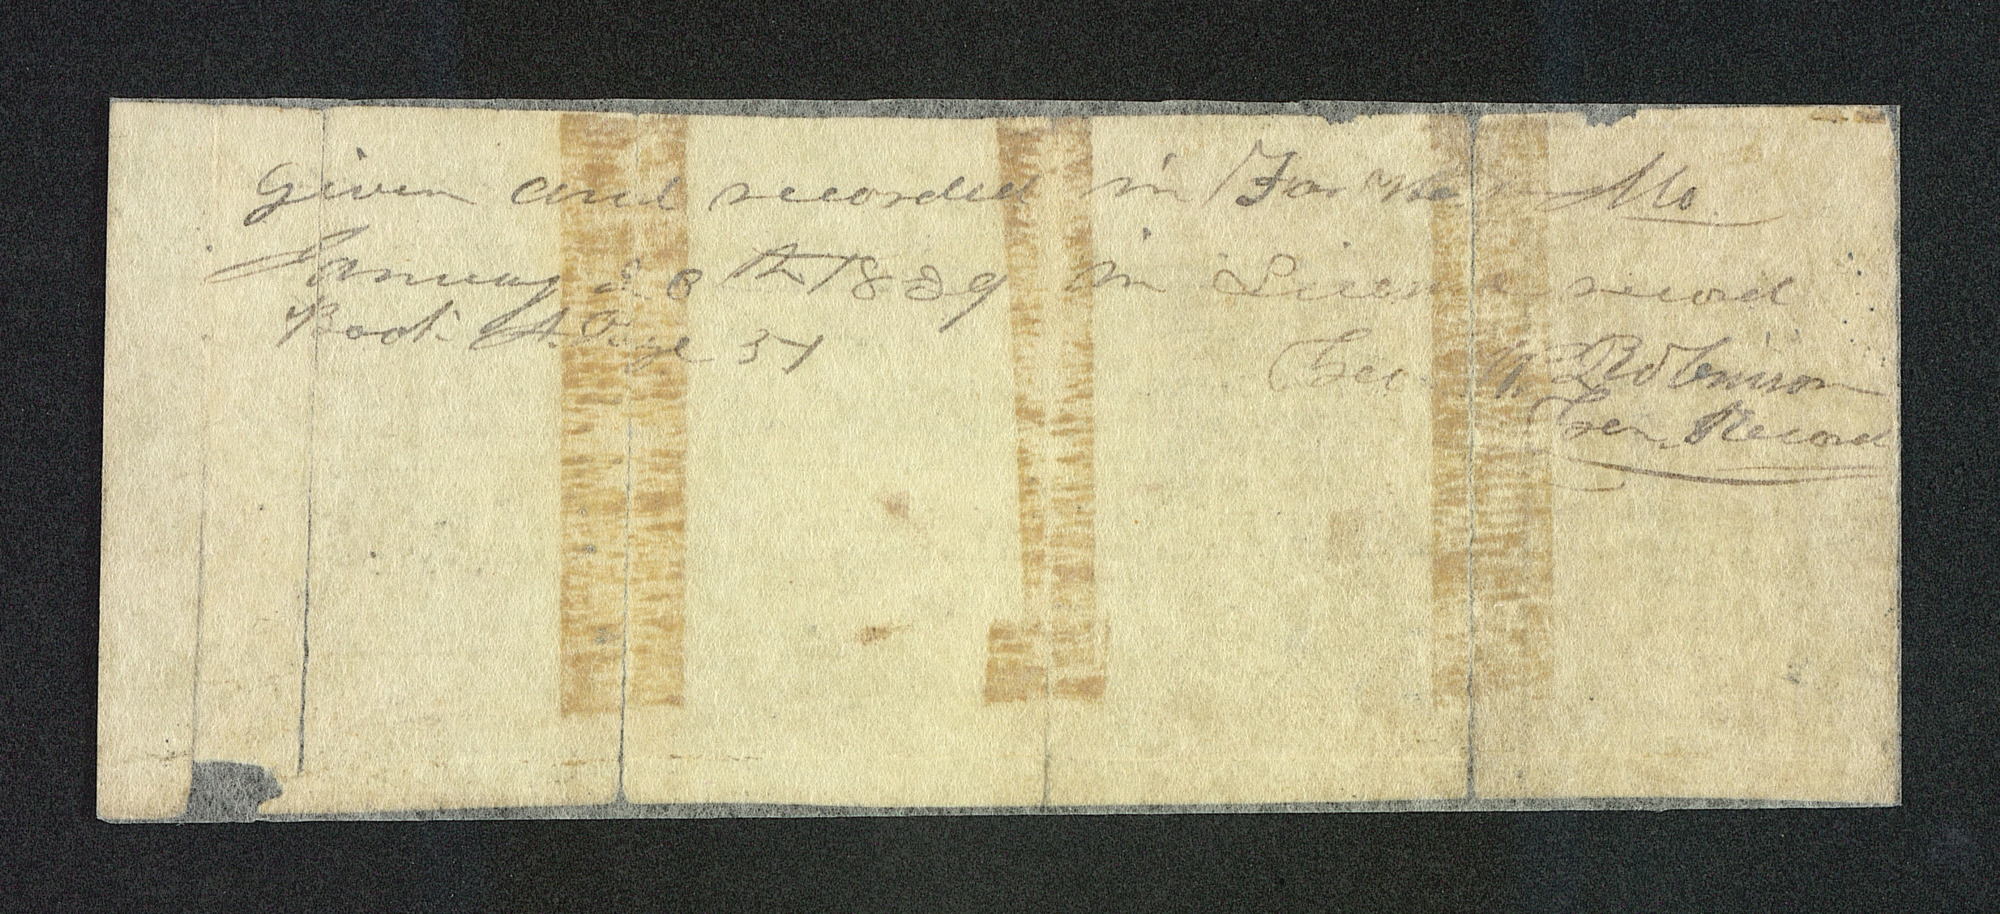 Given and recorded in Far West Mo
January 28th 1839 in License record
Book A. Page 37
Geo W Robinson
Gen. Record